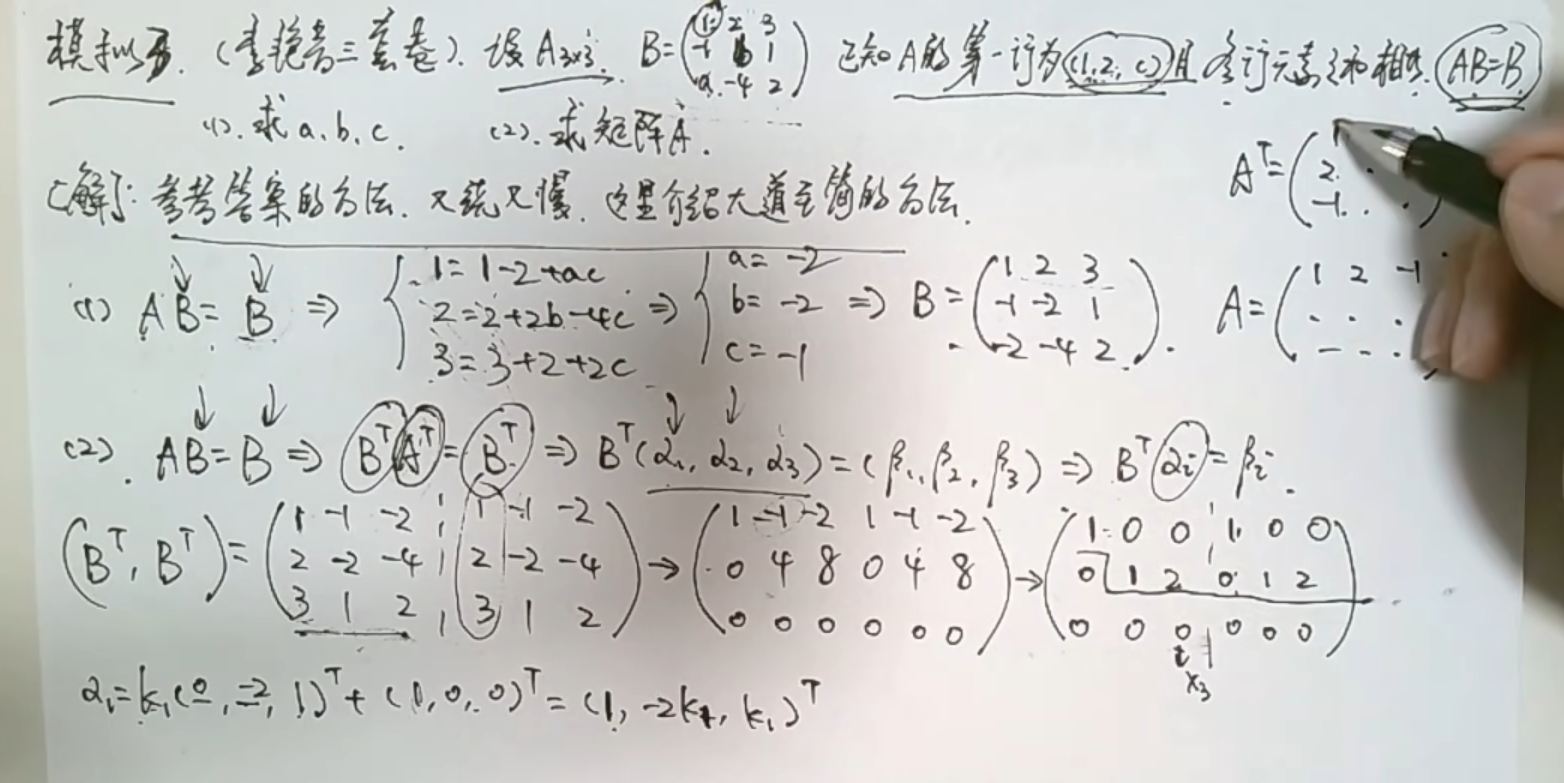 模拟5. (李艳芳三套卷). 设A3×3. B=(1 2 3; -1 b 1; a -4 2) 已知A的第一行为(1,2,c)且各行元素之和相等. AB=B
(1). 求a.b.c. (2). 求矩阵A.
[解]: 参考答案的方法. 又绕又慢. 这里介绍大道至简的方法.
A^T=(1 2 -1)
(1) AB=B ⇒ { 1=1-2+ac
2=2+2b-4c
3=3+2+2c
⇒ { a=-2
b=-2
c=-1
⇒ B=(1 2 3; -1 -2 1; -2 -4 2). A=(1 2 -1; . . .; . . .)
(2). AB=B ⇒ B^T A^T=B^T ⇒ B^T(α1, α2, α3)=(β1, β2, β3) ⇒ B^T αi=βi.
(B^T, B^T)=(1 -1 -2 1 -1 -2; 2 -2 -4 2 -2 -4; 3 1 2 3 1 2) → (1 -1 -2 1 -1 -2; 0 4 8 0 4 8; 0 0 0 0 0 0) → (1 0 0 1 0 0; 0 1 2 0 1 2; 0 0 0 0 0 0)
x3
α1=k1(0, -2, 1)^T+(1, 0, 0)^T=(1, -2k1, k1)^T